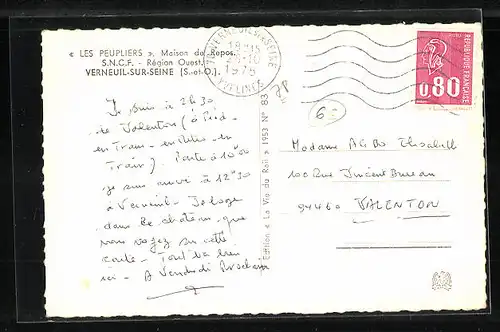 « LES PEUPLIERS », Maison de Repos.
S.N.C.F. - Région Ouest.
VERNEUIL-SUR-SEINE (S.-et-O.).
VERNEUIL S SEINE
1975
YVELINES
0,80
REPUBLIQUE FRANÇAISE
Edition « La Vie du Rail » 1953 N° 83
Je suis à 2h30
de Valenton (à Pied
en Tram - en - en
Train) Parti à 10h00
je suis arrivé à 12h30
à Verneuil - Je loge
dans le château que
vous voyez sur cette
carte - Tout va bien
ici - A Vendredi Prochain
6
Madame
100 Rue Vincent
94460 VALENTON